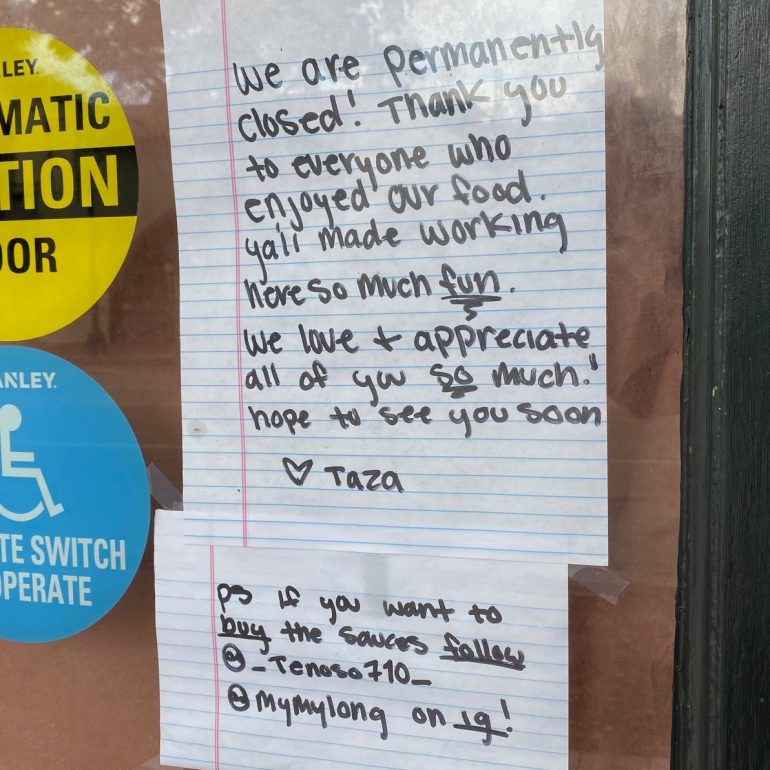 NLEY.
MATIC
TION
OOR
We are permanently
closed! Thank you
to everyone who
enjoyed our food.
ya'll made working
here so much fun.
We love + appreciate
all of you so much!
hope to see you soon
♡ Taza
ANLEY.
TE SWITCH
OPERATE
ps if you want to
buy the sauces follow
@_Tenoso710_
@mymylong on ig!